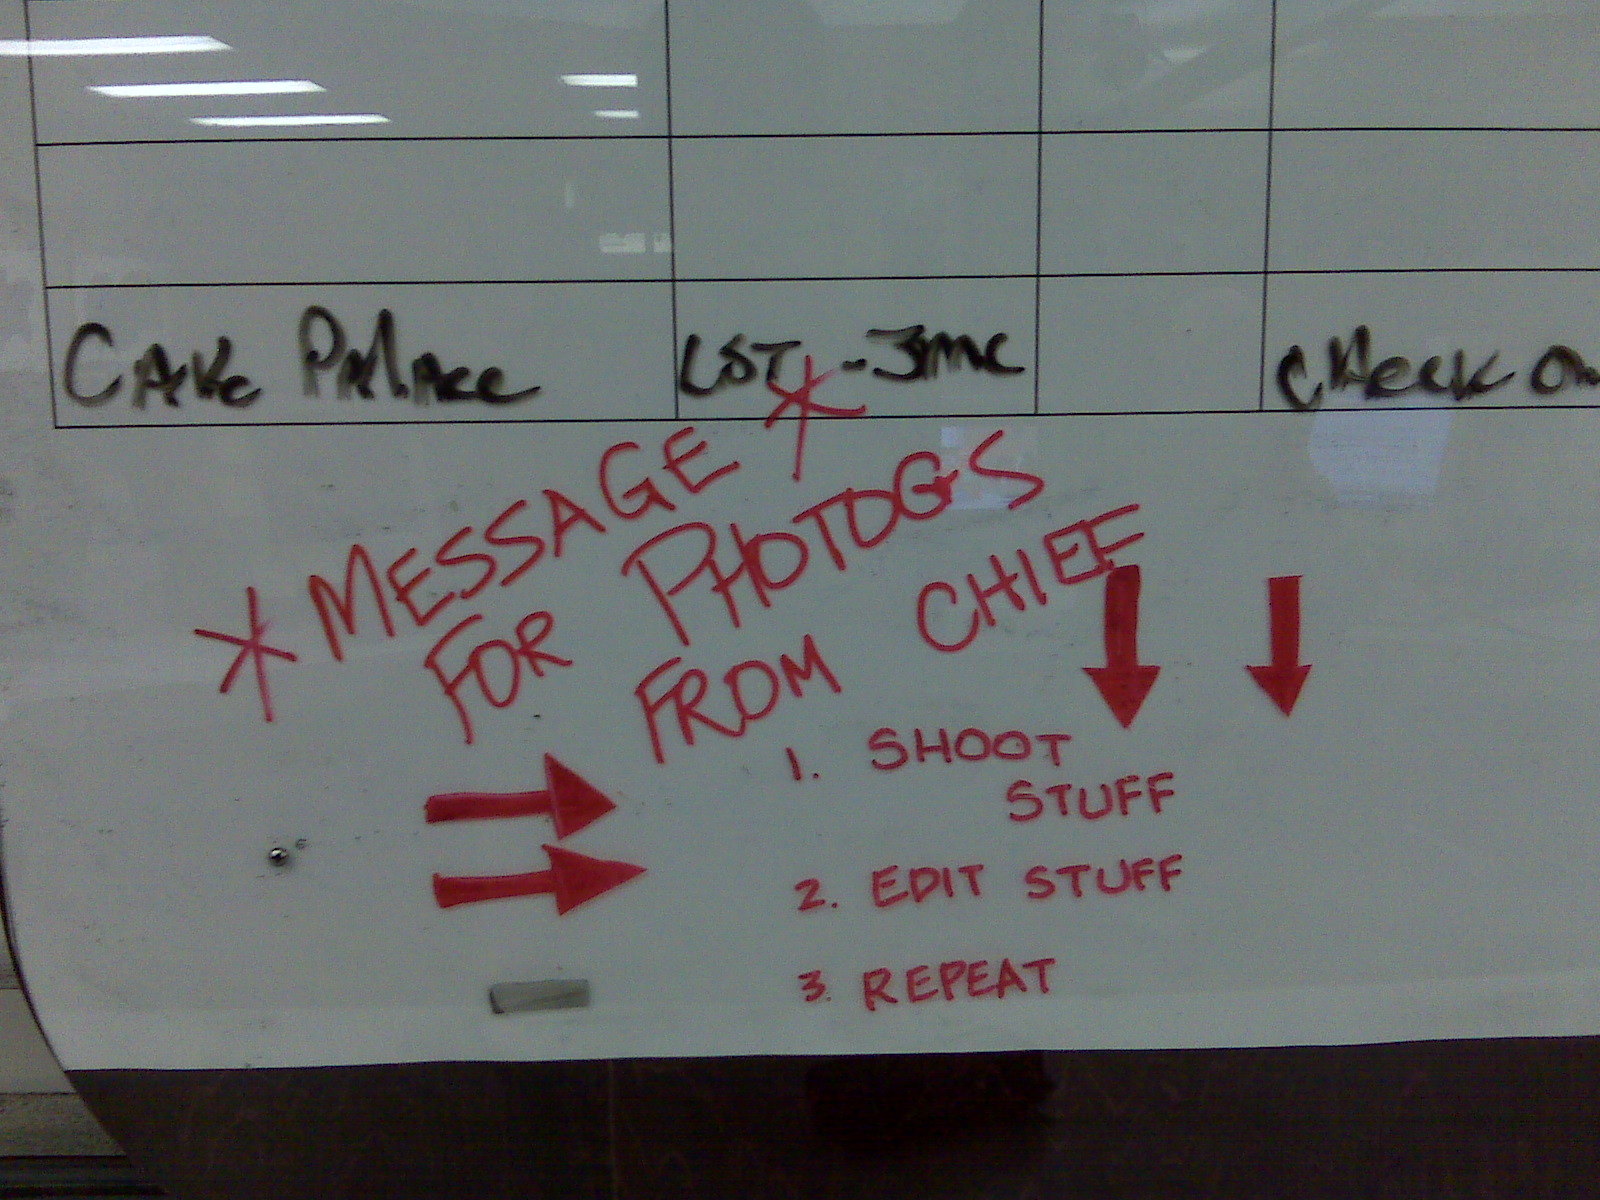 CAKE PALACE LST - JMC CHECK ON
* MESSAGE *
FOR PHOTOGS
FROM CHIEF
1. SHOOT
STUFF
2. EDIT STUFF
3. REPEAT